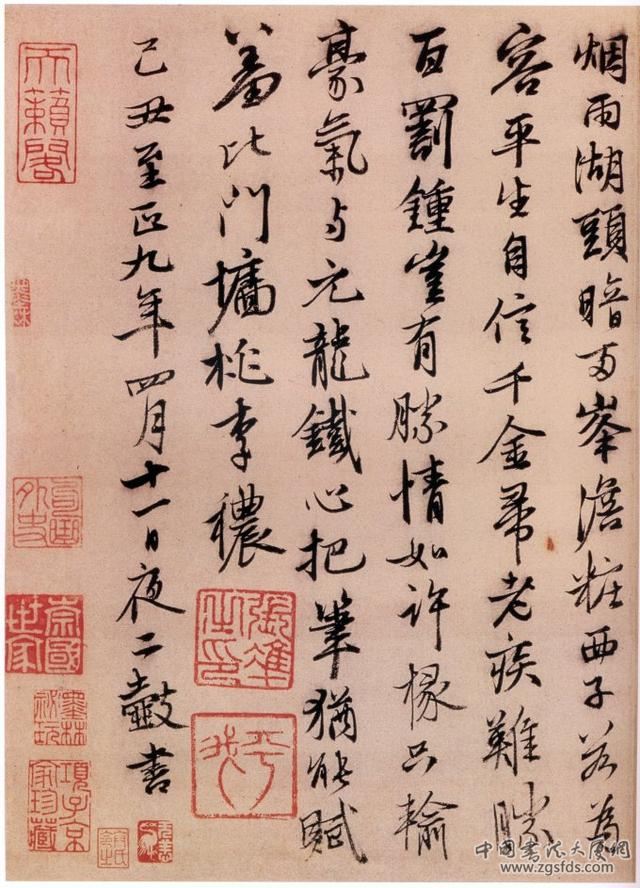 烟雨湖頭暗西峯澹粧西子若為
容平生自信千金帚老疾難勝
百罰鍾豈有勝情如许椽只輸
豪氣与元龍鐵心把筆猶能賦
羞比門墻桃李穠
己丑至正九年四月十一日夜二鼓書
張雄
之印
天籟閣
崇國
世家
墨林
祕玩
項子京
家珍藏
中国书法大厦网
www.zgsfds.com